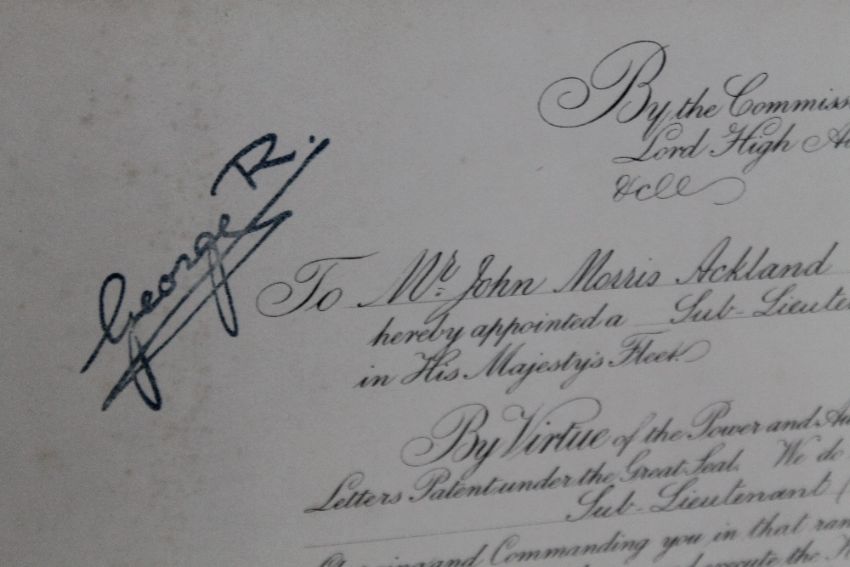 George R.
By the Commiss
Lord High A
&c
To Mr. John Morris Ackland
hereby appointed a Sub-Lieuten
in His Majesty's Fleet.
By Virtue of the Power and Au
Letters Patent under the Great Seal. We do
Sub-Lieutenant (
Charging and Commanding you in that ran
execute the